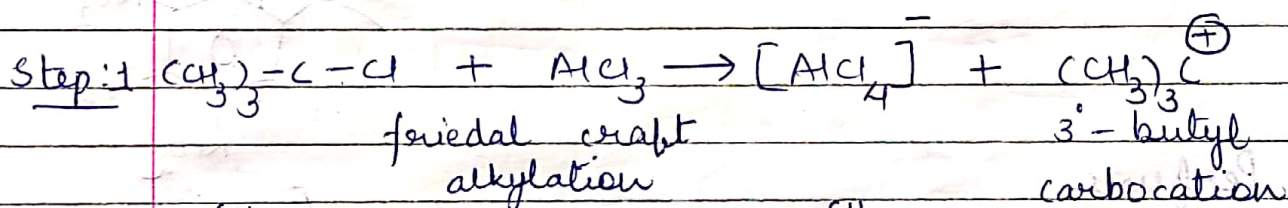 Step:1 (CH3)3-C-Cl + AlCl3 → [AlCl4]⁻ + (CH3)3C⊕
friedal craft 3°-butyl
alkylation carbocation